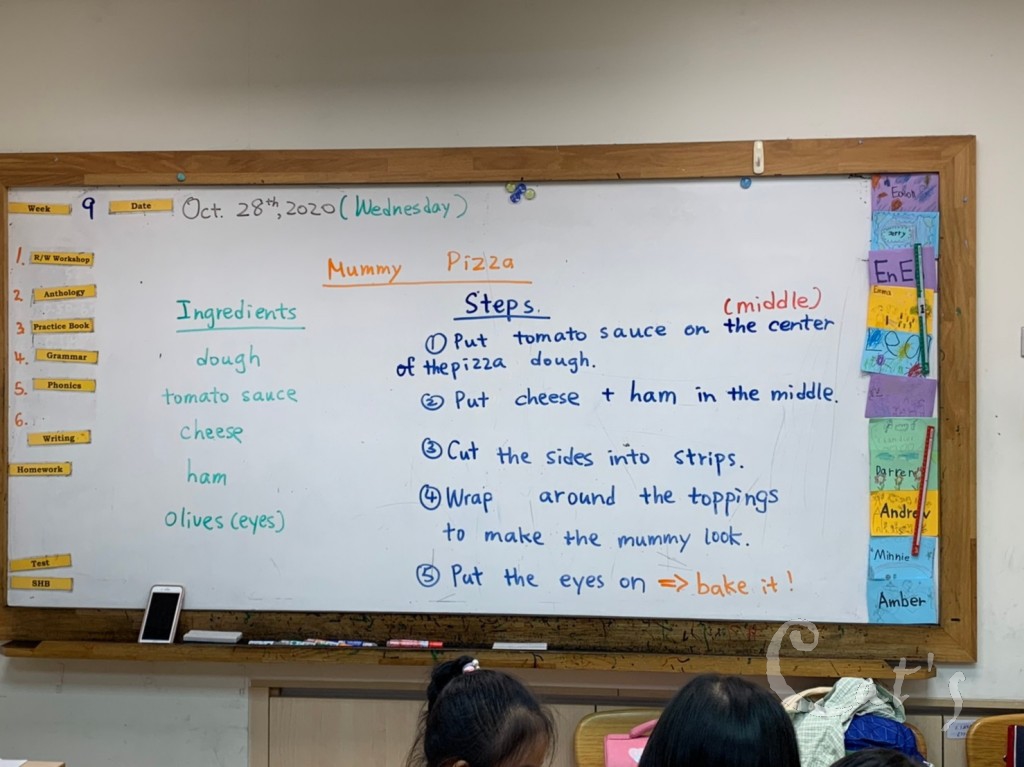 Week 9 Date Oct. 28th, 2020 (Wednesday)
1. R/W Workshop
2 Anthology
3 Practice Book
4. Grammar
5. Phonics
6.
Writing
Homework
Test
SHB
Mummy Pizza
Ingredients
dough
tomato sauce
cheese
ham
Olives (eyes)
Steps.
(middle)
① Put tomato sauce on the center
of the pizza dough.
② Put cheese + ham in the middle.
③ Cut the sides into strips.
④ Wrap around the toppings
to make the mummy look.
⑤ Put the eyes on => bake it!
Emma
Leo
Darren
Andrew
Minnie
Amber
Cat's